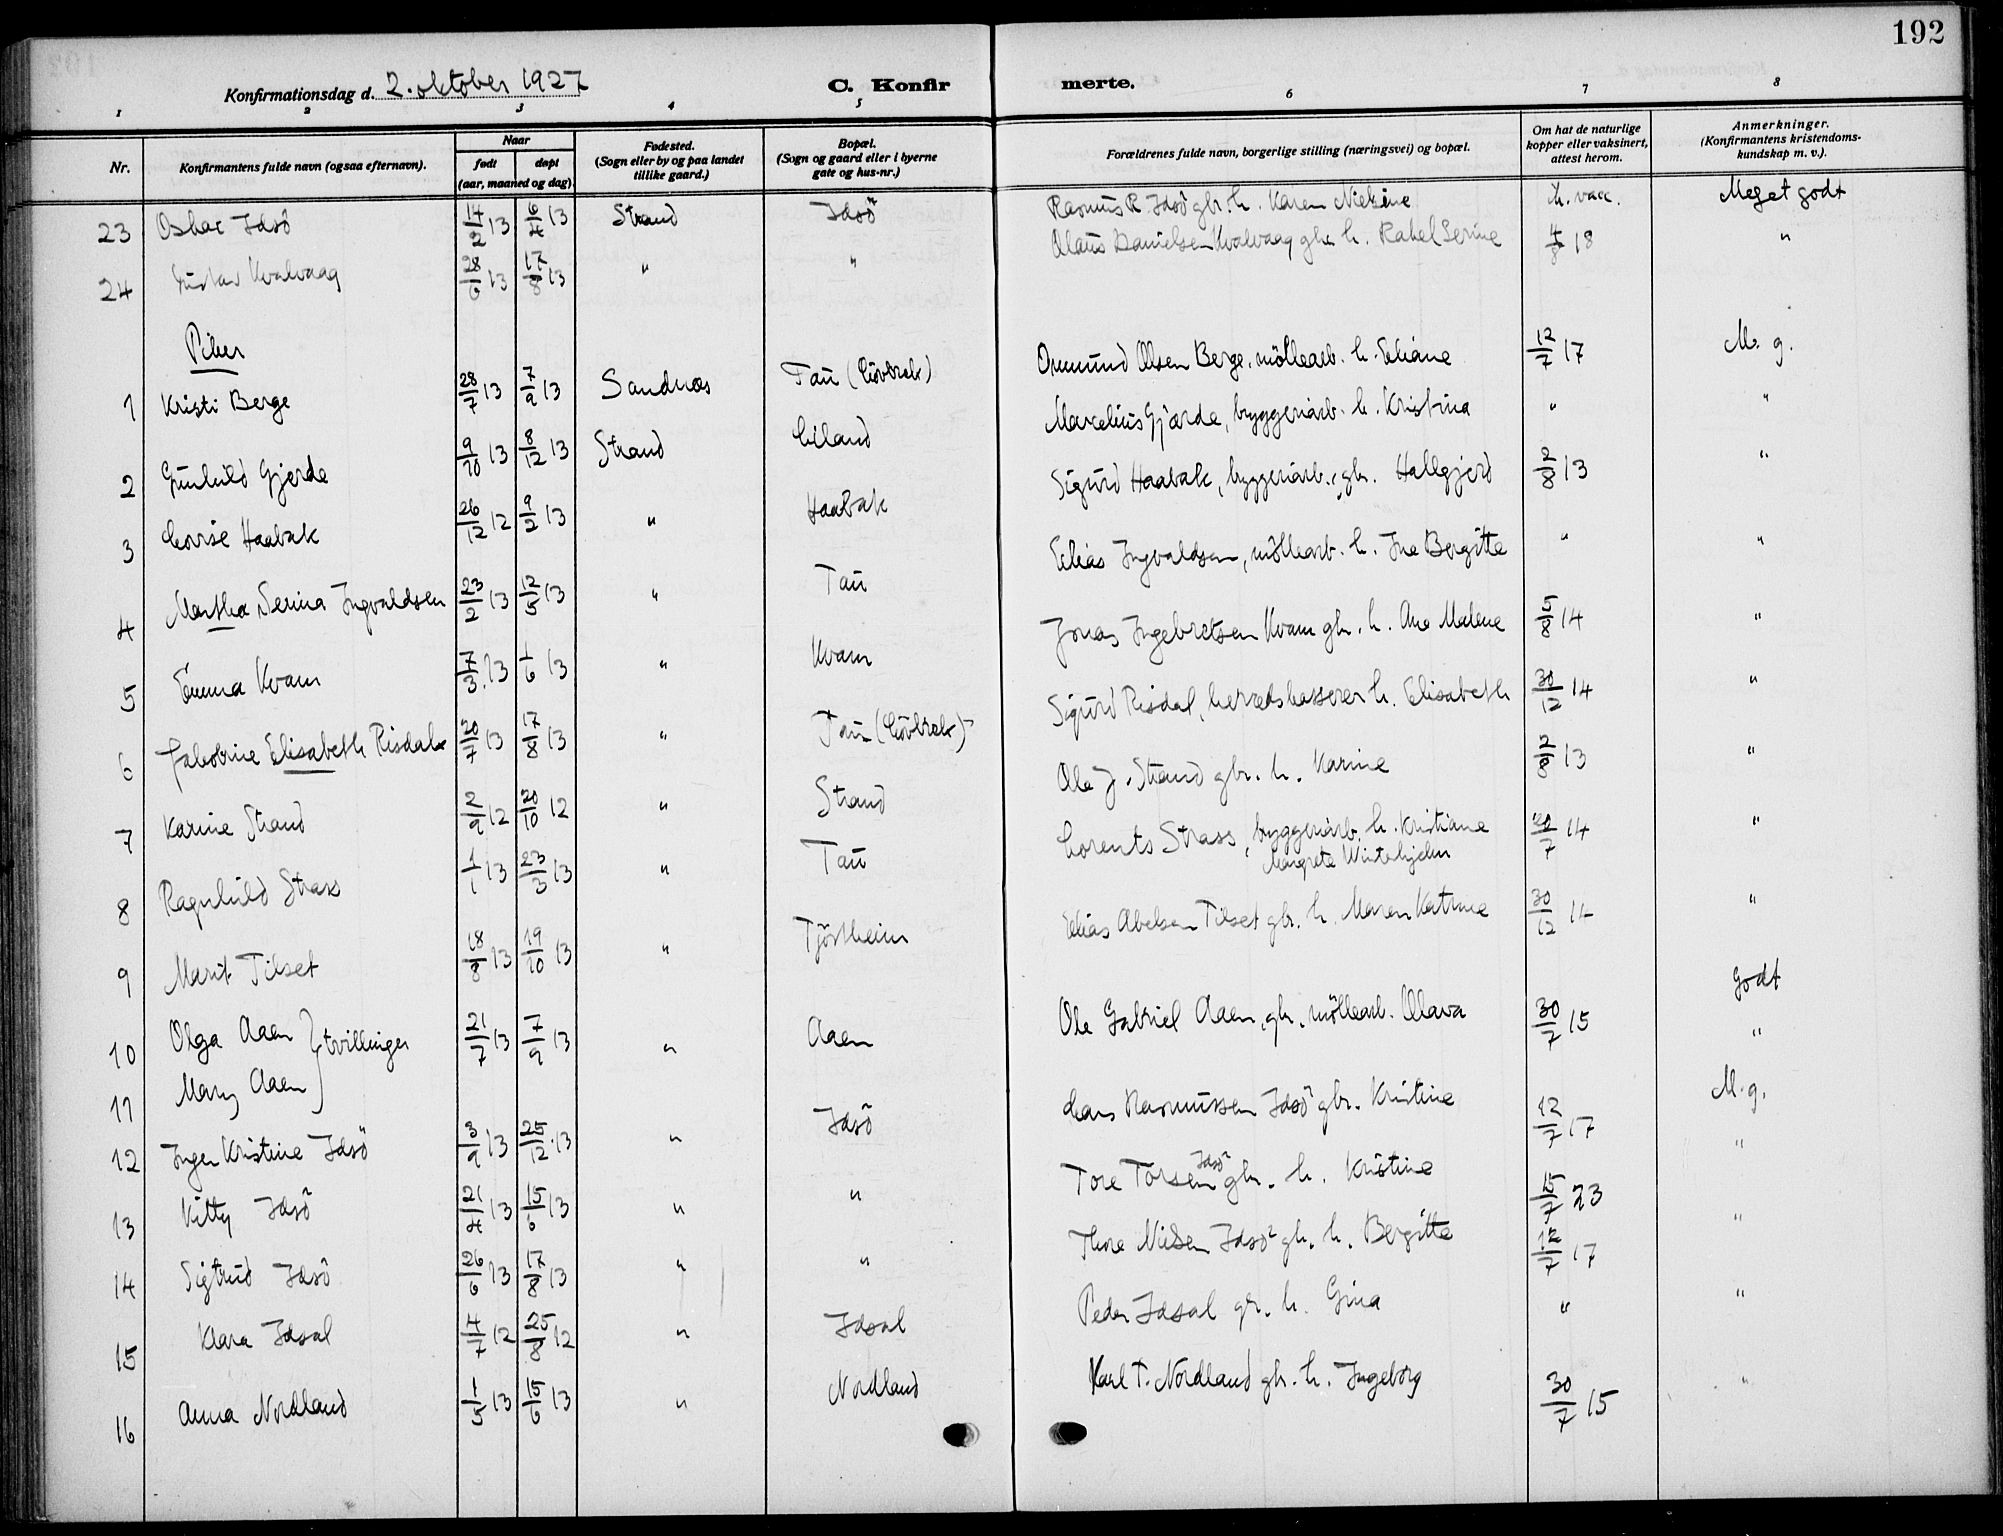 192
Konfirmationsdag d. 2. oktober 1927 C. Konfir merte.
1 2 3 4 5 6 7 8
Nr. Konfirmantens fulde navn (ogsaa efternavn). Naar født døpt (aar, maaned og dag) Fødested. (Sogn eller by og paa landet tillike gaard.) Bopæl. (Sogn og gaard eller i byerne gate og hus-nr.) Forældrenes fulde navn, borgerlige stilling (næringsvei) og bopæl. Om hat de naturlige kopper eller vaksinert, attest herom. Anmerkninger. (Konfirmantens kristendoms-kundskap m. v.).
23 Oskar Idsö 14/2 13 6/4 13 Strand Idsö Rasmus R. Idsö gbr. h. Karen Nielsine vacc. Meget godt
24 Gustav Kvalvaag 28/6 13 17/8 13 " " Olaus Danielsen Kvalvaag gbr. h. Rakel Serine 4/8 18 "
Piker
1 Kristi Berge 28/7 13 7/9 13 Sandnæs Tau Ommund Olsen Berge, möllearb. h. Eliane 12/7 17 M. g.
2 Gunhild Gjerde 9/10 13 8/12 13 Strand Eiland Marselius Gjærde, byggeriarb. h. Kristina " "
3 Lovise Haabak 26/12 12 9/2 13 " Haabak Sigurd Haabak, byggeriarb., gbr. Hallgjerd 2/8 13 "
4 Martha Serina Ingvaldsen 23/2 13 12/5 13 " Tau Elias Ingvaldsen, möllearb. h. Ine Bergitte " "
5 Emma Kvam 7/3 13 1/6 13 " Kvam Jonas Ingebretsen Kvam gbr. h. Ane Malene 5/8 14 "
6 Jakobine Elisabeth Risdal 20/7 13 17/8 13 " Tau Sigurd Risdal, herredskasserer h. Elisabeth 30/12 14 "
7 Karine Strand 2/9 12 20/10 12 " Strand Ole J. Strand gbr. h. Karine 2/8 13 "
8 Ragnhild Strass 1/1 13 23/3 13 " Tau Lorents Strass, byggeriarb. h. Kristiane
Margrete 7 14 "
9 Marit Tilset 18/8 13 19/10 13 " Tjöstheim Elias Abelsen Tilset gbr. h. Maren Katrine 30/12 14 "
10 Olga Aaen } tvillinger 21/7 13 7/9 13 " Aaen Ole Gabriel Aaen, gbr., möllearb. Olava 30/7 15 Godt
11 Mary Aaen "
12 Inger Kristine Idsö 3/9 13 25/12 13 " Idsö Lars Rasmussen Idsö gbr. Kristine 12/7 17 M. g.
13 Kitty Idsö 21/4 13 15/6 13 " " Tore Torsen Idsö gbr. h. Kristine 15/7 23 "
14 Sigtrud Idsö 26/6 13 17/8 13 " " Thore Nilsen Idsö gbr. h. Bergitte 12/7 17 "
15 Klara Idsal 4/7 12 25/8 12 " Idsal Peder Idsal gbr. h. Gina " "
16 Anna Nordland 1/5 13 15/6 13 " Nordland Karl T. Nordland gbr. h. Ingeborg 30/7 15 "